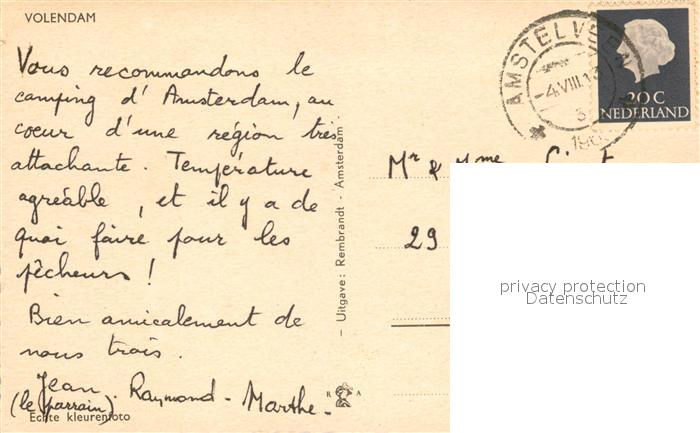 VOLENDAM
Vous recommandons le
camping d'Amsterdam, au
coeur d'une région très
attachante. Température
agréable, et il y a de
quoi faire pour les
pêcheurs !
Bien amicalement de
nous trois.
Jean. Raymond - Marthe -
(le parrain)
Echte kleurenfoto
- Uitgave: Rembrandt - Amsterdam -
R A
AMSTELVEEN
-4.VIII.13
196
20 C
NEDERLAND
Mr & Mme
29
privacy protection
Datenschutz